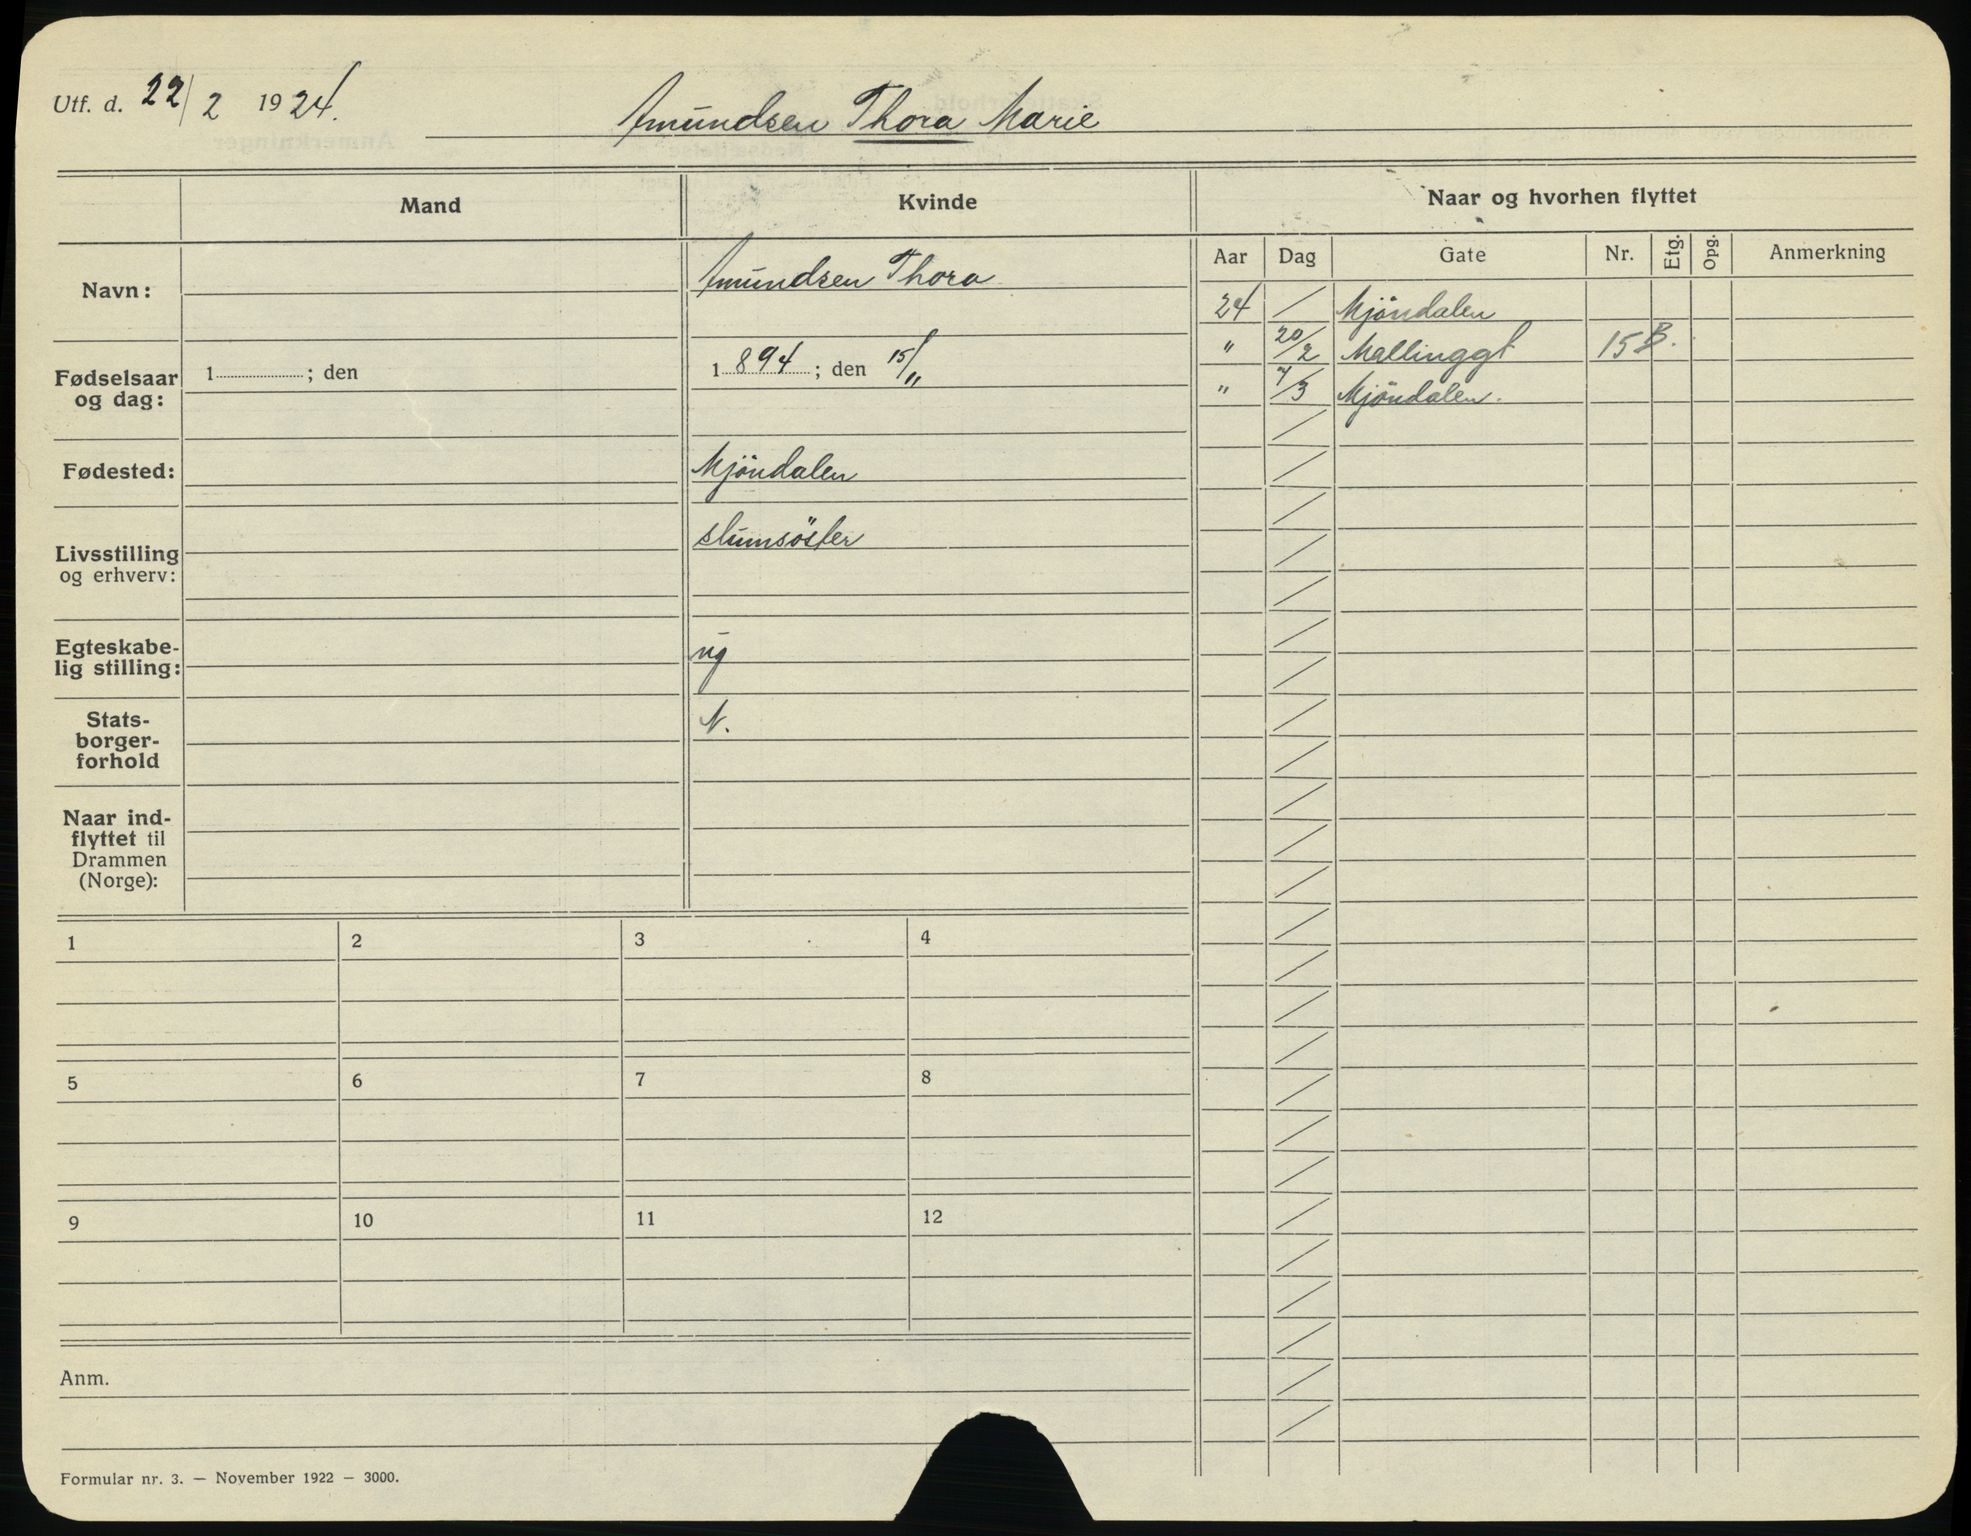 Utf. d. 22/2 1924.
Amundsen Thora Marie
Mand
Kvinde
Naar og hvorhen flyttet
Aar Dag Gate Nr. Etg. Opg. Anmerkning
Navn:
Amundsen Thora
Fødselsaar og dag:
1 ; den
1 894 ; den 15/11
Fødested:
Mjöndalen
Livsstilling og erhverv:
slumsöster
Egteskabe-
lig stilling:
ug
Stats-
borger-
forhold
N.
Naar ind-
flyttet til
Drammen
(Norge):
24 / Mjöndalen
" 20/2 Mallinggt 15B.
" 7/3 Mjöndalen.
1 2 3 4
5 6 7 8
9 10 11 12
Anm.
Formular nr. 3. — November 1922 — 3000.